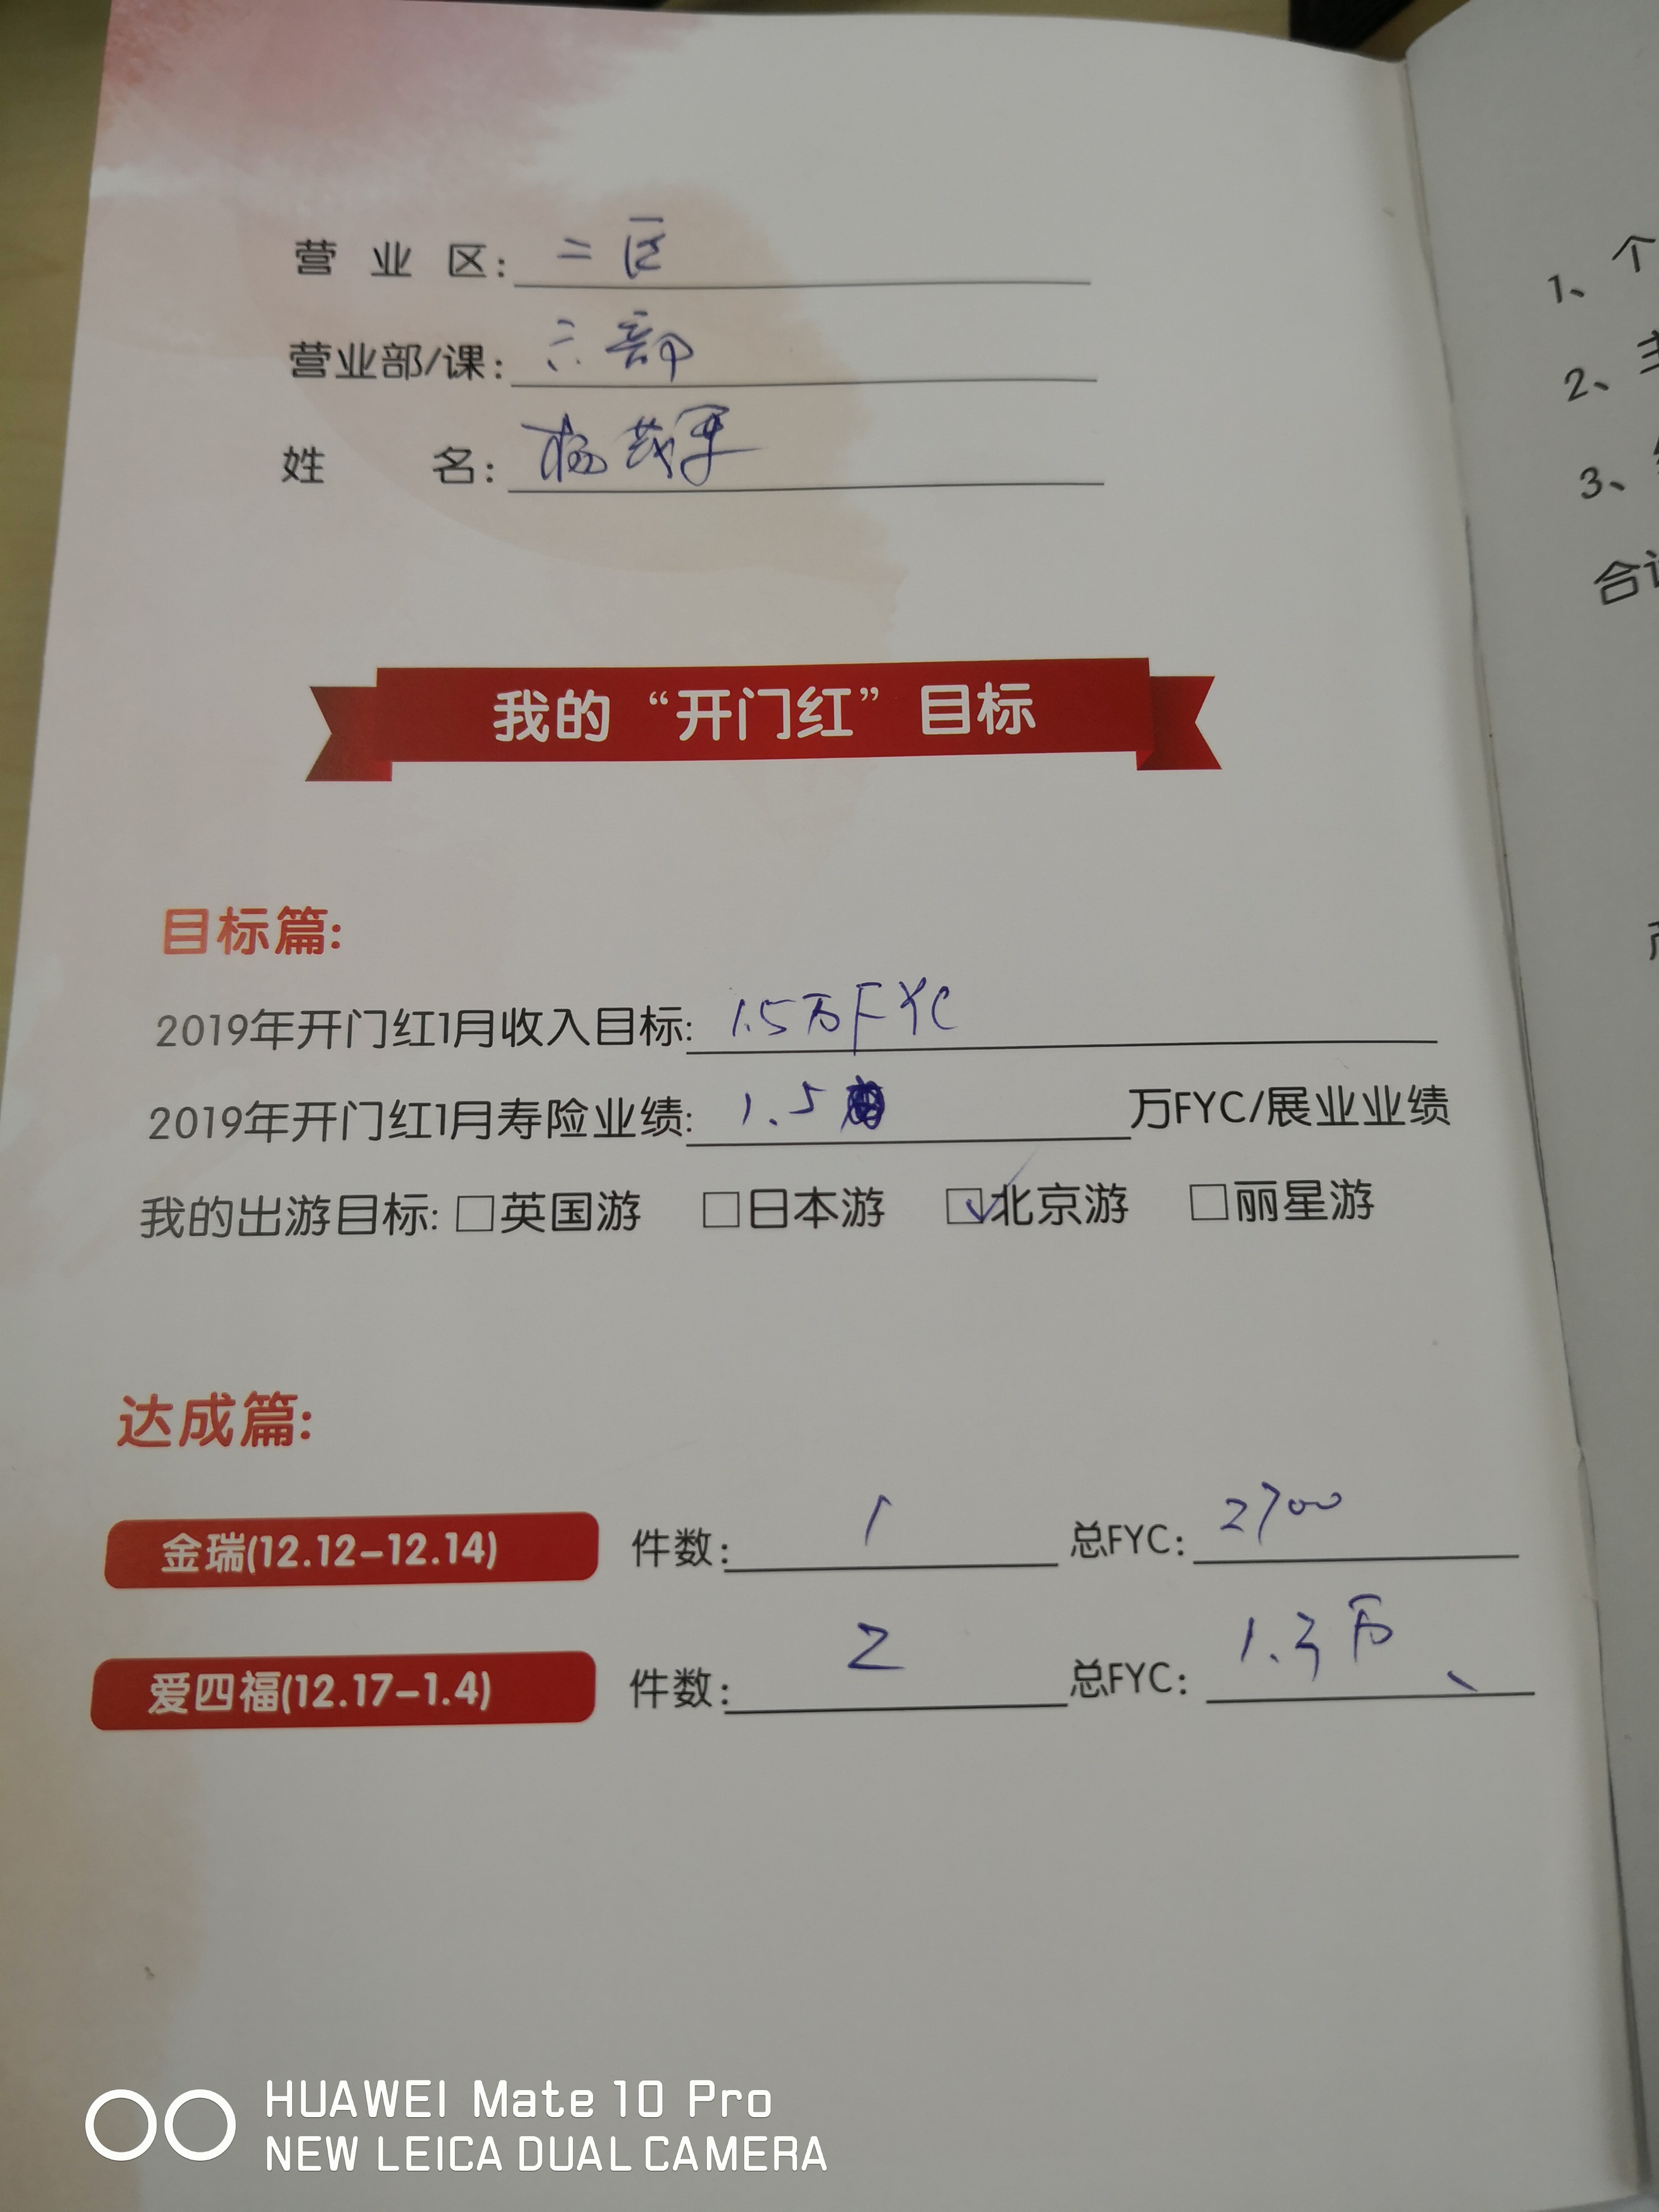 营 业 区: 二区
营业部/课: 六部
姓 名: 杨
我的“开门红”目标
目标篇:
2019年开门红1月收入目标: 1.5万FYC
2019年开门红1月寿险业绩: 1.5 万FYC/展业业绩
我的出游目标: □英国游 □日本游 ☑北京游 □丽星游
达成篇:
金瑞(12.12-12.14) 件数: 1 总FYC: 2700
爱四福(12.17-1.4) 件数: 2 总FYC: 1.3万
1、个
2、主
3、
合
HUAWEI Mate 10 Pro
NEW LEICA DUAL CAMERA